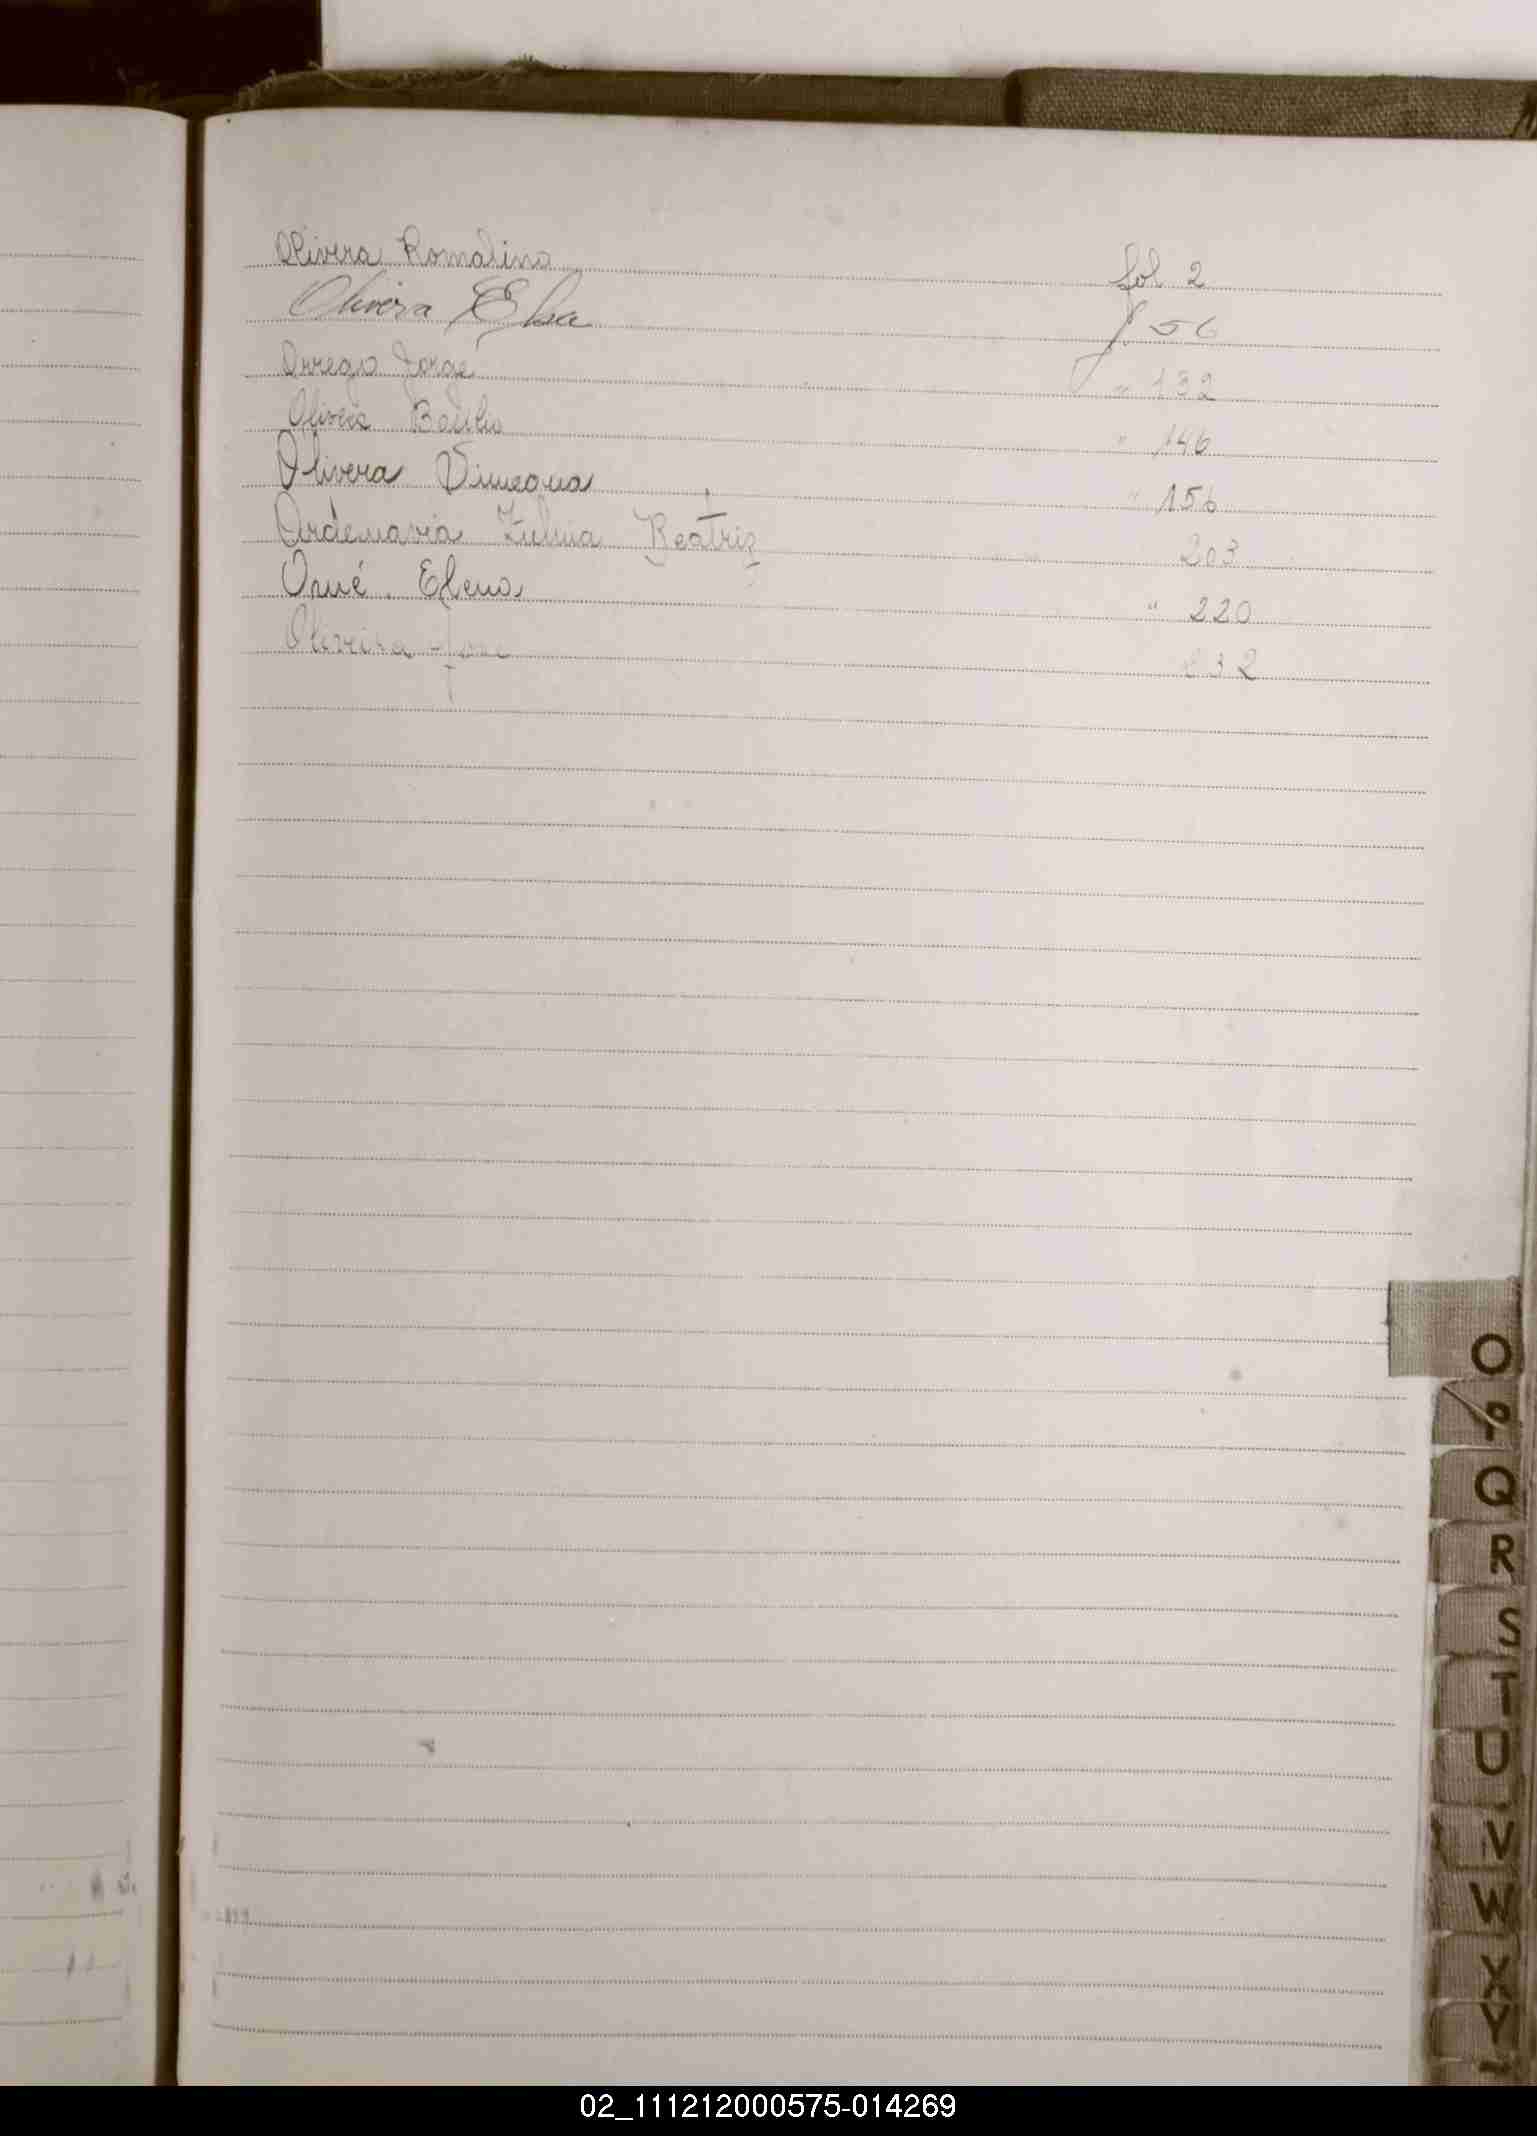 Olivera Romalina fol 2
Olivera Elsa f. 56
Orrego Jorge " 132
Olivera Basilio " 146
Olivera Simeona " 156
Zulma Beatriz 203
Orué. Elena " 220
Oliveira Jose 232
O
P
Q
R
S
T
U
V
W
X
Y
02_111212000575-014269